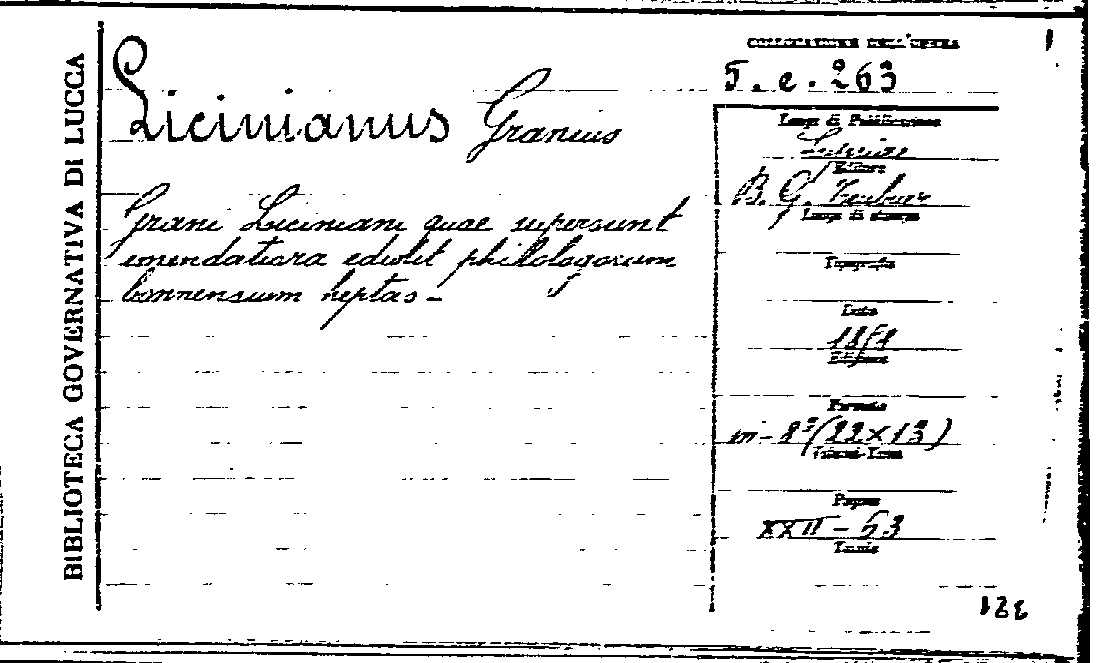 BIBLIOTECA GOVERNATIVA DI LUCCA
Licinianus Granius
Grani Liciniani quae supersunt
emendatiora edidit philologorum
bonnensium heptas -
COLLOCAZIONE DELL'OPERA
5. e. 263
Luogo di Pubblicazione
Lipsiae
Editore
B. G. Teubner
Luogo di stampa
Tipografia
Data
Edizione
Formato
in-8° (22x13)
Volumi-Tomi
Pagine
XXII - 53